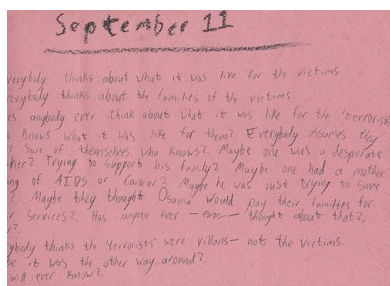 September 11
verybody thinks about what it was like for the victims
everybody thinks about the families of the victims
es anybody ever think about what it was like for the 'terrorists
knows what it was like for them? Everybody assumes they
sure of themselves who knows?. Maybe one was a desperate
ther? Trying to support his family? Maybe one had a mother
ng of AIDS or Cancer? Maybe he was just trying to save
?. Maybe they thought Osama would pay their families for
r services?. Has anyone ever thought about that?.
r?.
ybody thinks the 'terrorists' were villans— not the victims.
be it was the other way around?.
will ever know?.